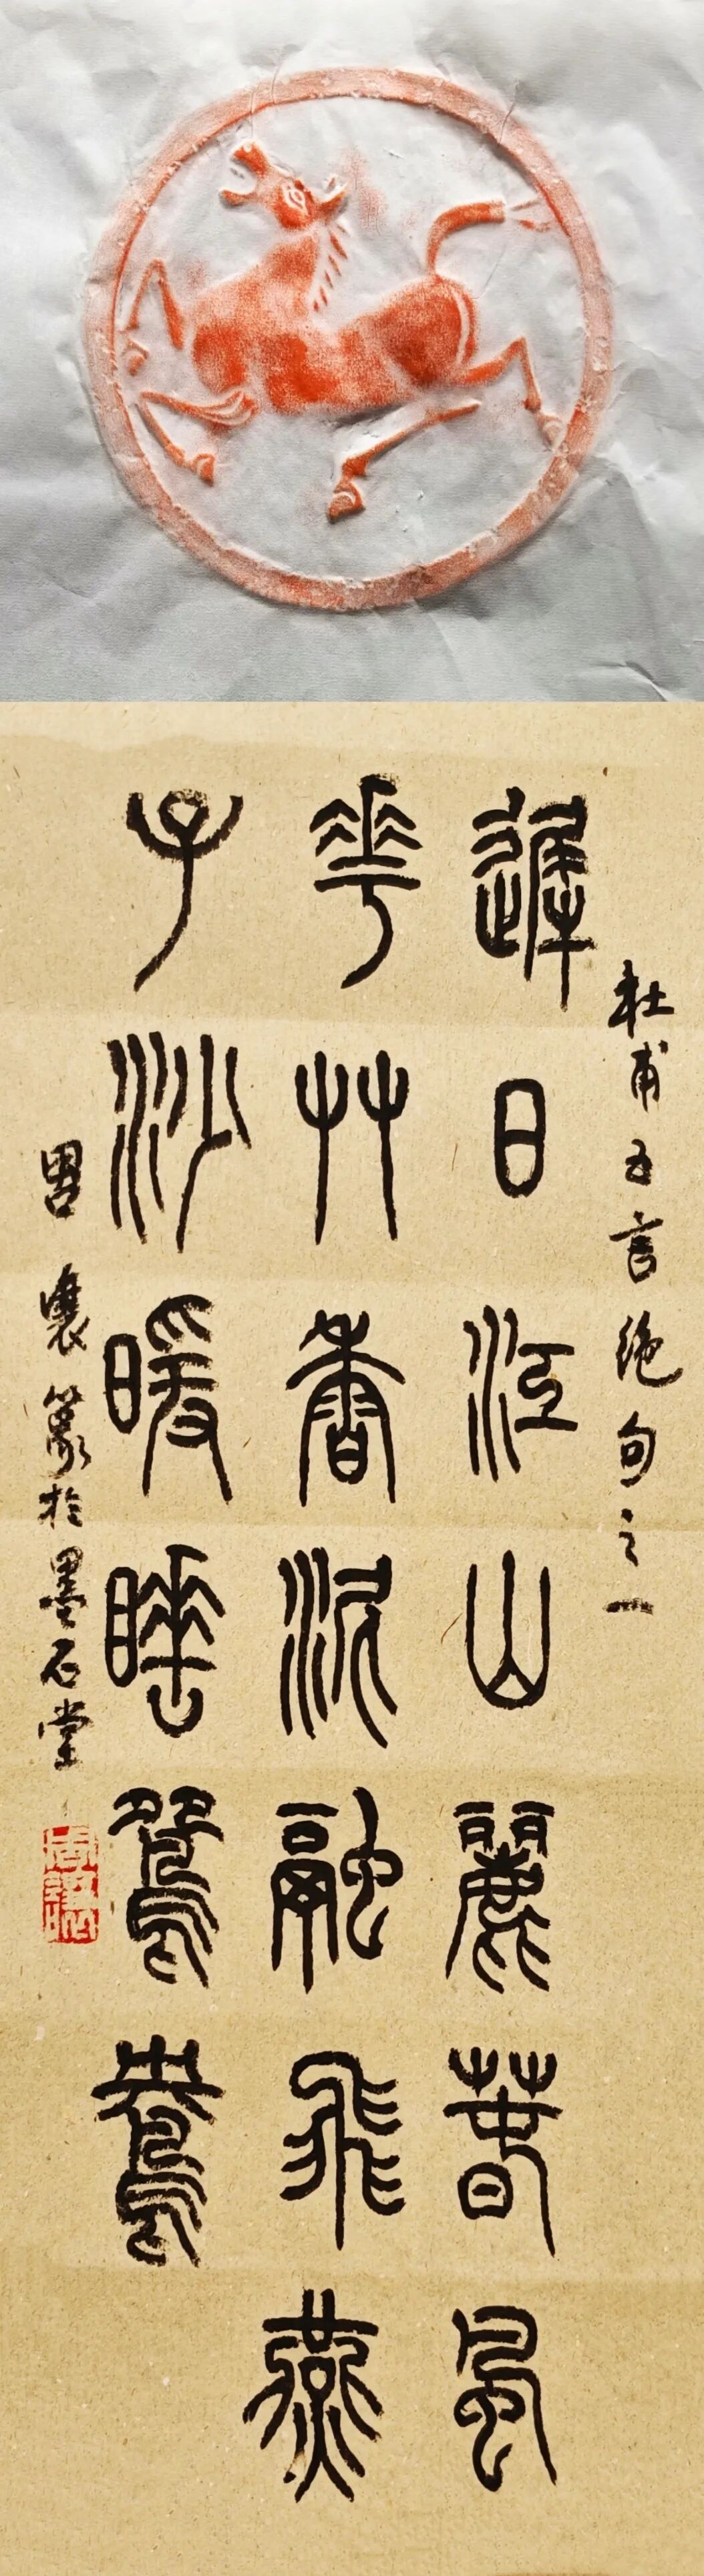 杜甫五言絕句之一
遲日江山麗春風
花艸香泥融飛燕
子沙暖睡鴛鴦
周讓篆於墨石堂
周讓